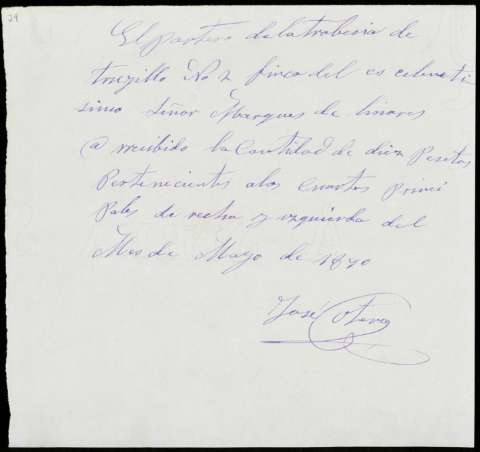 29
El portero de la trabesia de
trugillo No 2 finca del es celenti
simo Señor Marques de linares
a recibido la Cantidad de diez Pesetas
Pertenecientes alos Cuartos Princi
Pales de recha y izquierda del
Mes de Mayo de 1890
José Otero